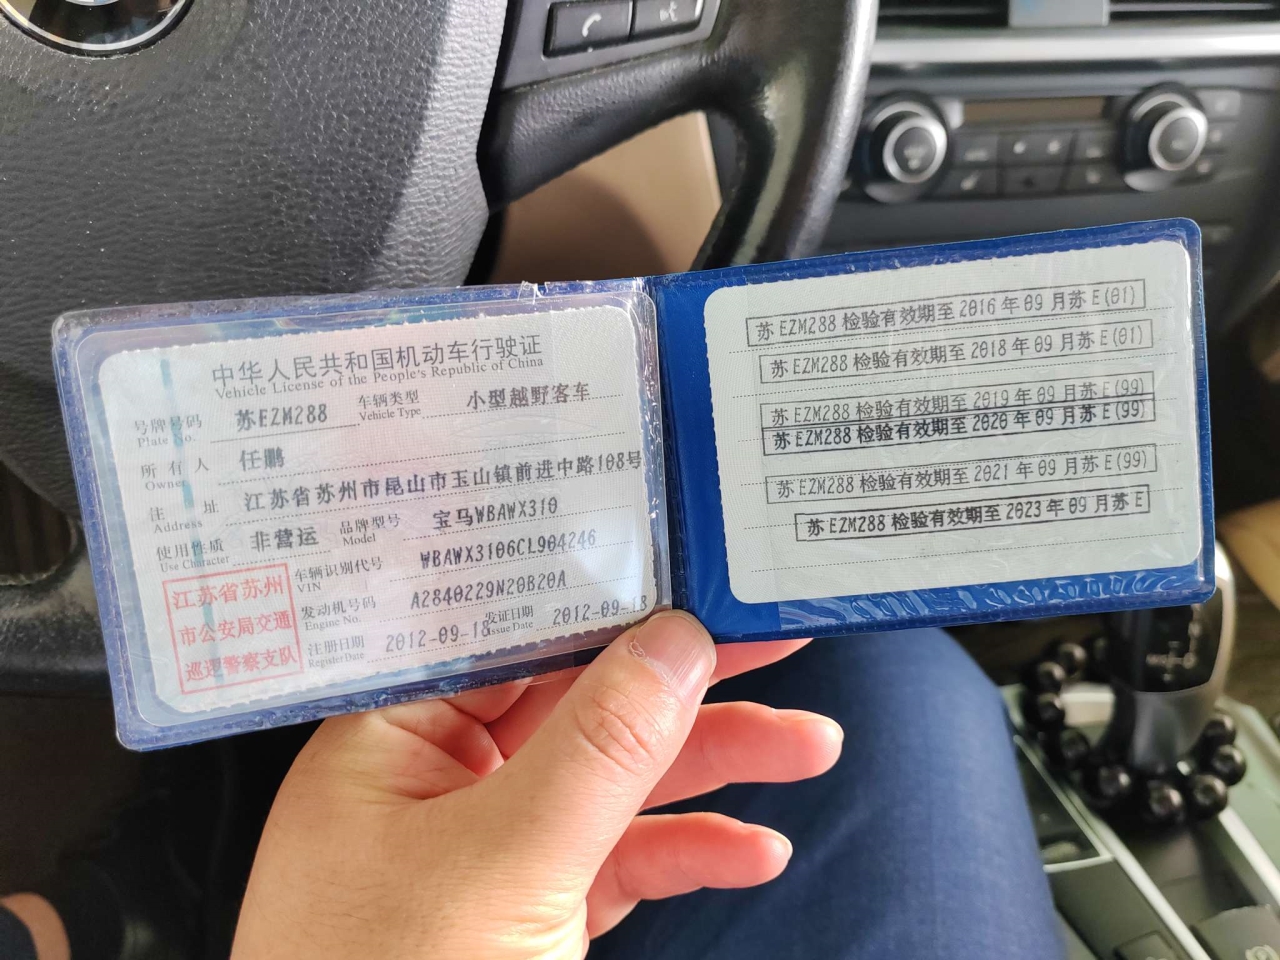 中华人民共和国机动车行驶证
Vehicle License of the People's Republic of China
号牌号码 苏EZM288 车辆类型 小型越野客车
Plate No. Vehicle Type
所有人 任鹏
Owner
住址 江苏省苏州市昆山市玉山镇前进中路108号
Address
使用性质 非营运 品牌型号 宝马WBAWX310
Use Character Model
车辆识别代号 WBAWX3106CL904246
VIN
发动机号码 A2840229N20B20A
Engine No.
注册日期 2012-09-18 发证日期 2012-09-18
Register Date Issue Date
江苏省苏州
市公安局交通
巡逻警察支队
苏EZM288检验有效期至2016年09月苏E(01)
苏EZM288检验有效期至2018年09月苏E(01)
苏EZM288检验有效期至2019年09月苏E(99)
苏EZM288检验有效期至2020年09月苏E(99)
苏EZM288检验有效期至2021年09月苏E(99)
苏EZM288检验有效期至2023年09月苏E